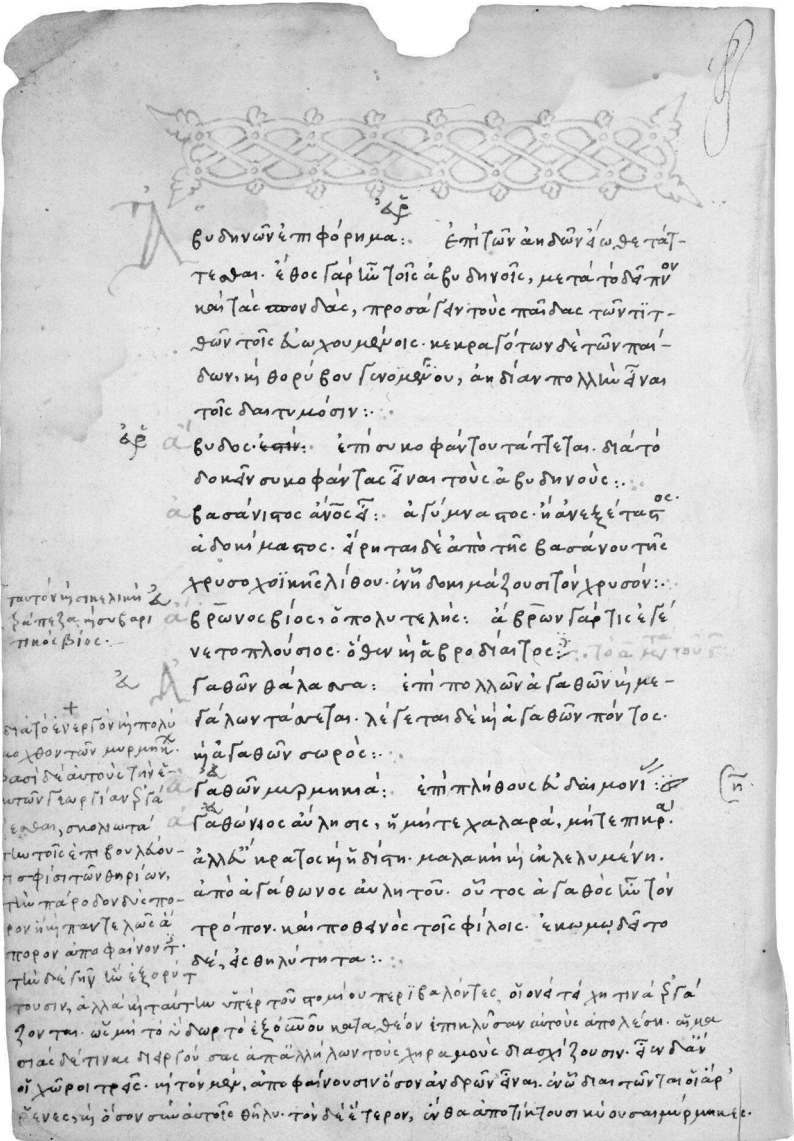 Ἀβυδηνῶν ἐπιφόρημα: ἐπὶ τῶν ἀηδῶν
τεσθαι. ἔθος γὰρ ἦν τοῖς ἀβυδηνοῖς, μετὰ τὸ δεῖπνον
καὶ τὰς σπονδάς, προσάγειν τοὺς παῖδας τῶν τιτ-
θῶν τοῖς εὐωχουμένοις. κεκραγότων δὲ τῶν παί-
δων, καὶ θορύβου γενομένου, ἀηδίαν πολλὴν εἶναι
τοῖς δαιτυμόσιν:
ἄβυδος: ἐπὶ συκοφάντου τάττεται. διὰ τὸ
δοκεῖν συκοφάντας εἶναι τοὺς ἀβυδηνούς:
ἀβασάνιστος ἄνος εἶ: ἀγύμναστος. ἢ ἀνεξέταστος.
ἀδοκίμαστος. εἴρηται δὲ ἀπὸ τῆς βασάνου τῆς
χρυσοχοϊκῆς λίθου. ἐν ᾗ δοκιμάζουσι τὸν χρυσόν:
ἄβρωνος βίος, ὁ πολυτελής: ἄβρων γάρ τις ἐγέ
νετο πλούσιος. ὅθεν καὶ ἁβροδίαιτος:
Ἀγαθῶν θάλασσα: ἐπὶ πολλῶν ἀγαθῶν καὶ με-
γάλων τάσσεται. λέγεται δὲ καὶ ἀγαθῶν πόντος.
καὶ ἀγαθῶν σωρός:
ἀγαθῶν μυρμηκιά: ἐπὶ πλήθους εὐδαιμονί
ἀγαθώνιος αὔλησις, ἡ μήτε χαλαρά, μήτε πικρά.
ἀλλ᾽ εὔκρατος καὶ ἡδίστη. μαλακὴ καὶ ἐκλελυμένη.
ἀπὸ ἀγάθωνος αὐλητοῦ. οὗτος ἀγαθὸς ἦν τὸν
τρόπον. καὶ ποθεινὸς τοῖς φίλοις. ἐκωμῳδεῖτο
δέ, εἰς θηλύτητα:
ταυτὸν καὶ σικελικὴ
τράπεζα, καὶ συβαρι
τικὸς βίος.
διὰ τὸ ἐνεργὸν καὶ πολύ
μοχθον τῶν μυρμήκ.
φασὶ δὲ αὐτοὺς τὴν
τῶν γεωργίαν ἐργά
ζεσθαι, σκολιωτά
την τοῖς ἐπιβουλεύου-
σι σφίσι τῶν θηρίων,
τὴν πάροδον δύσπο-
ρον ἢ καὶ παντελῶς ἄ
πορον ἀποφαίνοντ.
τὴν δὲ γῆν ἣν ἐξορύτ
τουσιν, ἀλλὰ καὶ ταύτην ὑπὲρ τοῦ στομίου περιβαλόντες, οἱονεὶ τείχη τινὰ ἐργά
ζονται. ὡς μὴ τὸ ὕδωρ τὸ ἐξ οὐνοῦ καταθέον ἐπικλῦσαν αὐτοὺς ἀπολέσῃ.
σιὰς δέ τινας διειργούσας ἀπ᾽ ἀλλήλων τοὺς χηραμοὺς διασχίζουσιν. εἶεν δ᾽ ἂν
οἱ χῶροι τρεῖς. καὶ τὸν μέν, ἀποφαίνουσιν ὅσον ἀνδρῶν εἶναι. ἐν ᾧ διαιτῶνται οἱ ἄρ
ρενες, καὶ ὅσον σὺν αὐτοῖς θῆλυ. τὸν δὲ ἕτερον, ἔνθα ἀποτίκτουσι κύουσαι μύρμηκες.